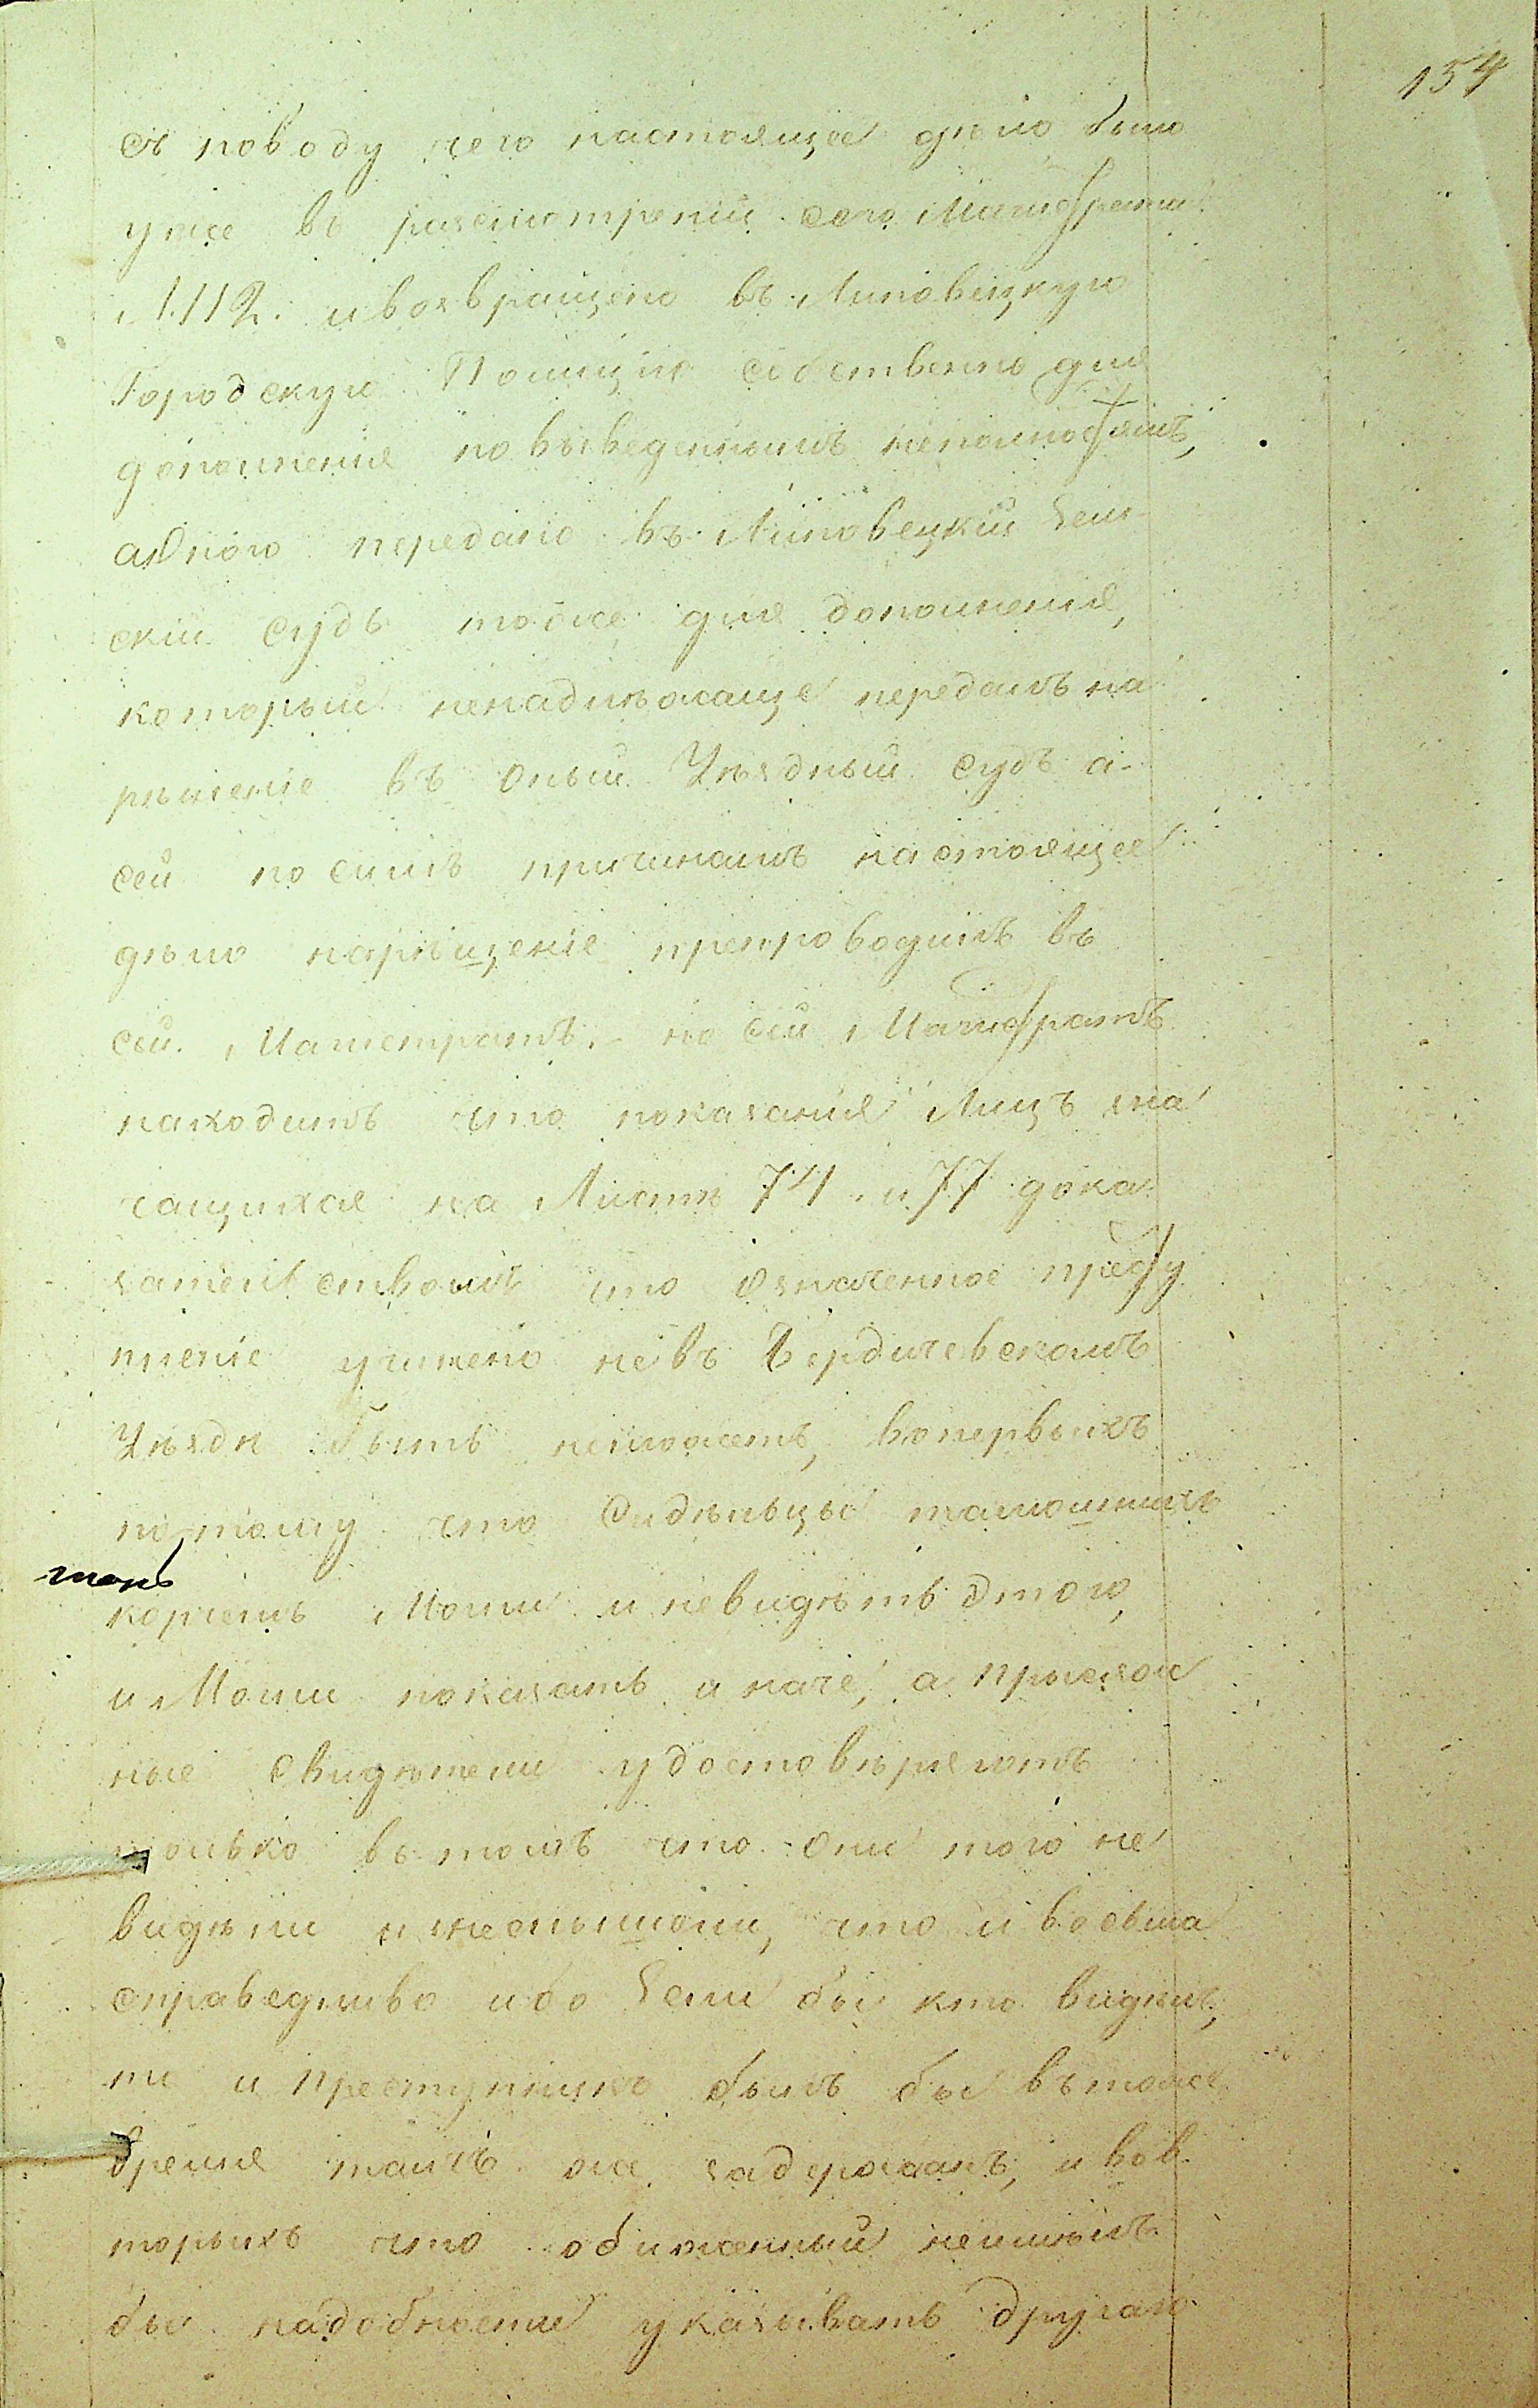 154
съ поводу чего настоящее дѣло было
уже въ разсмотреніи сего Магистрата
и возвращено въ Липовецкую
Городскую Полицію собственно для
дополненія по выведеннымъ неполностямъ,
а оною передано въ Липовецкій Зем-
скій Судъ тоже для дополненія,
который ненадлѣжаще передалъ на
рѣшеніе въ оный Уѣздный Судъ а-
сей по симъ причинамъ настоящее
дѣло нарѣшеніе препроводилъ въ
сей Магистратъ. – но сей Магистратъ
находитъ что показанія Лицъ зна
чащихся на Листѣ 74 и 77 дока
зательствомъ что означенное престу
пленіе учинено не въ Бердичевскомъ
Уѣздѣ быть неможетъ, вопервыхъ
потому что Сидѣльцы тамошнихъ
корчемъ Могли и невидѣть этого,
тожъ
и Могли показать иначе, а присяж
ные Свидѣтели удостовѣряютъ
только въ томъ что они того не
видѣли и неслышали, что и весьма
справедливо ибо Если бы кто видѣлъ,
то и преступникъ былъ бы въ тоже
время тамъ же задержанъ, и вов
торыхъ что обиженный неимѣлъ
бы надобности указывать другаго